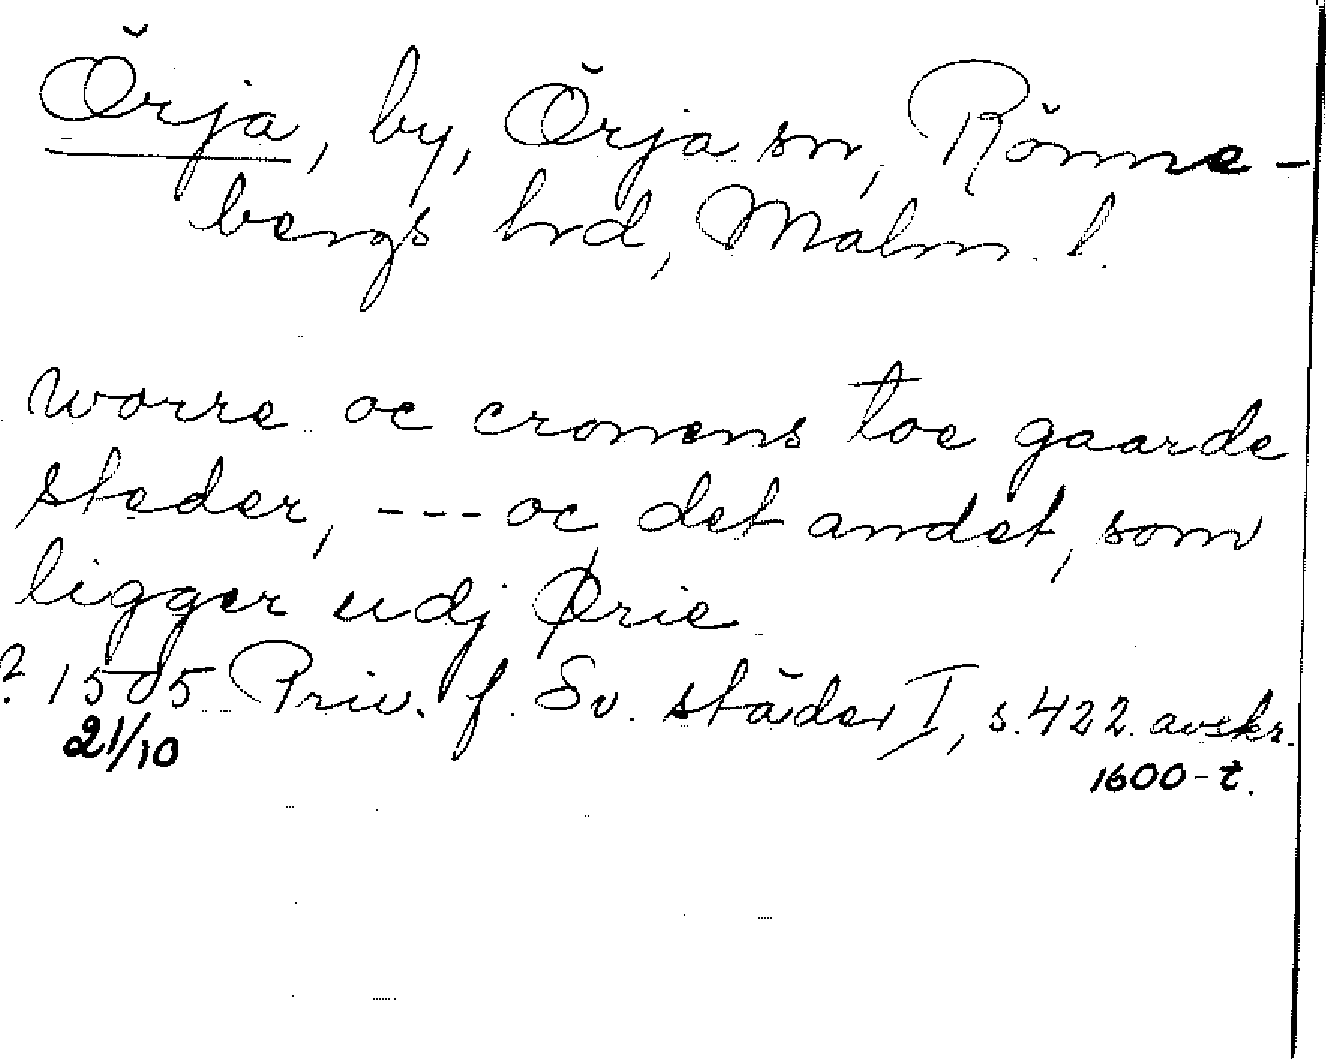 Örja, by, Örja sn, Rönne-
bergs hrd, Malm. l.
worre oc cronens toe gaarde
steder, --- oc det andet, som
ligger udj Ørie
? 1505 Priv. f. Sv. städer I, s. 422. avskr.
21/10
1600-t.